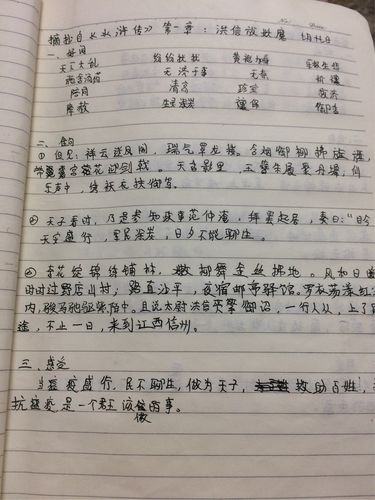 No. Date.
摘抄自《水浒传》第一章：洪信误妖魔 月 日
一、好词
天下太乱 纷纷扰扰 黄袍加身
无 济于事 无奈 祈禳
陪同 清名 诏
降赦 生灵涂炭 御书
二、佳句
① 但见：祥云迷凤阁，瑞气罩龙楼。含烟御柳拂旌旗，
宫花迎剑戟。天香影里，玉簪朱履聚丹墀，仙
乐声中，绣袄 扶御驾。
② 天子看时，乃是参知政事范仲淹，拜罢起居，奏曰："目今
天灾盛行，军民涂炭，日夕不能聊生。
③ 杏花绽锦绮铺林，嫩柳舞金丝拂地。风和日暖
时时过野店山村，路直沙平，夜宿邮亭驿馆。罗衣荡漾红
内，骏马驰驱紫陌中。且说太尉洪信 御诏，一行人从，上了
途，不止一日，来到江西信州。
三、感受
当瘟疫盛行，民不聊生，做为天子，救助百姓，
抗瘟疫是一个君王该做的事。